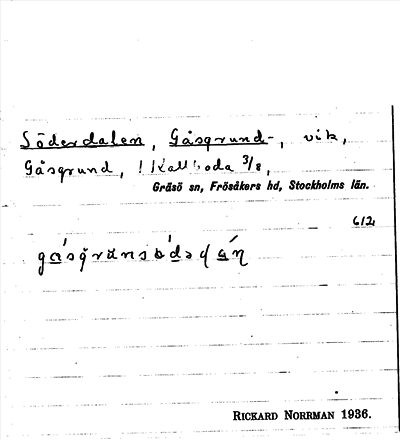 Söderdalen, Gåsgrund-, vik,
Gåsgrund, 1 Kallboda 3/8,
Gräsö sn, Frösåkers hd, Stockholms län.
612
RICKARD NORRMAN 1936.